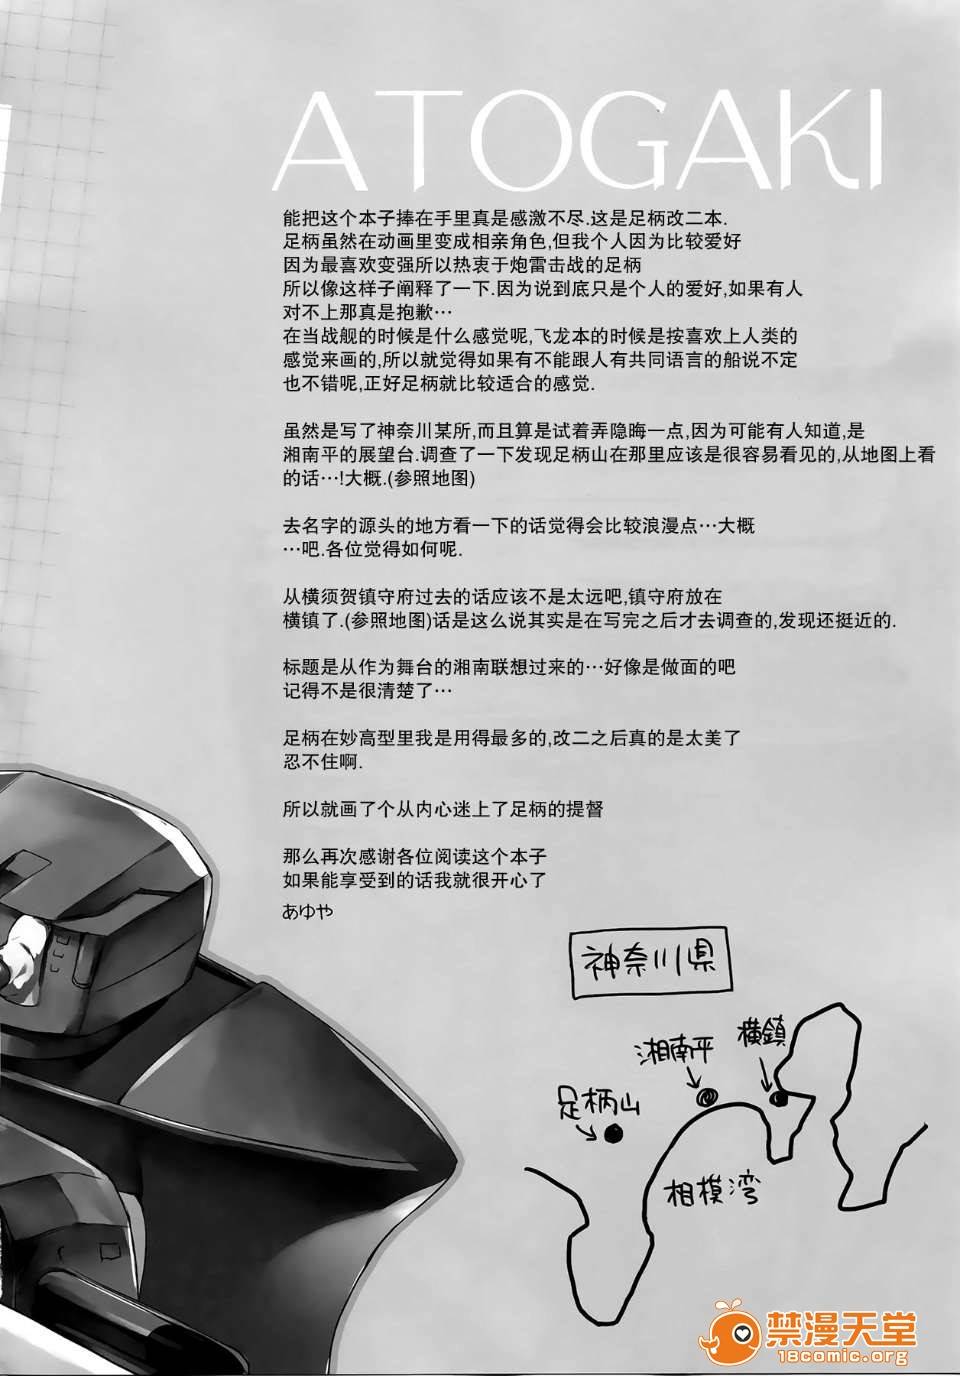 ATOGAKI
能把这个本子捧在手里真是感激不尽.这是足柄改二本.
足柄虽然在动画里变成相亲角色,但我个人因为比较爱好
因为最喜欢变强所以热衷于炮雷击战的足柄
所以像这样子阐释了一下.因为说到底只是个人的爱好,如果有人
对不上那真是抱歉…
在当战舰的时候是什么感觉呢,飞龙本的时候是按喜欢上人类的
感觉来画的,所以就觉得如果有不能跟人有共同语言的船说不定
也不错呢,正好足柄就比较适合的感觉.
虽然是写了神奈川某所,而且算是试着弄隐晦一点,因为可能有人知道,是
湘南平的展望台.调查了一下发现足柄山在那里应该是很容易看见的,从地图上看
的话…!大概.(参照地图)
去名字的源头的地方看一下的话觉得会比较浪漫点…大概
…吧.各位觉得如何呢.
从横须贺镇守府过去的话应该不是太远吧,镇守府放在
横镇了.(参照地图)话是这么说其实是在写完之后才去调查的,发现还挺近的.
标题是从作为舞台的湘南联想过来的…好像是做面的吧
记得不是很清楚了…
足柄在妙高型里我是用得最多的,改二之后真的是太美了
忍不住啊.
所以就画了个从内心迷上了足柄的提督
那么再次感谢各位阅读这个本子
如果能享受到的话我就很开心了
あゆや
神奈川県
横鎮
湘南平
足柄山
相模湾
禁漫天堂
18comic.org